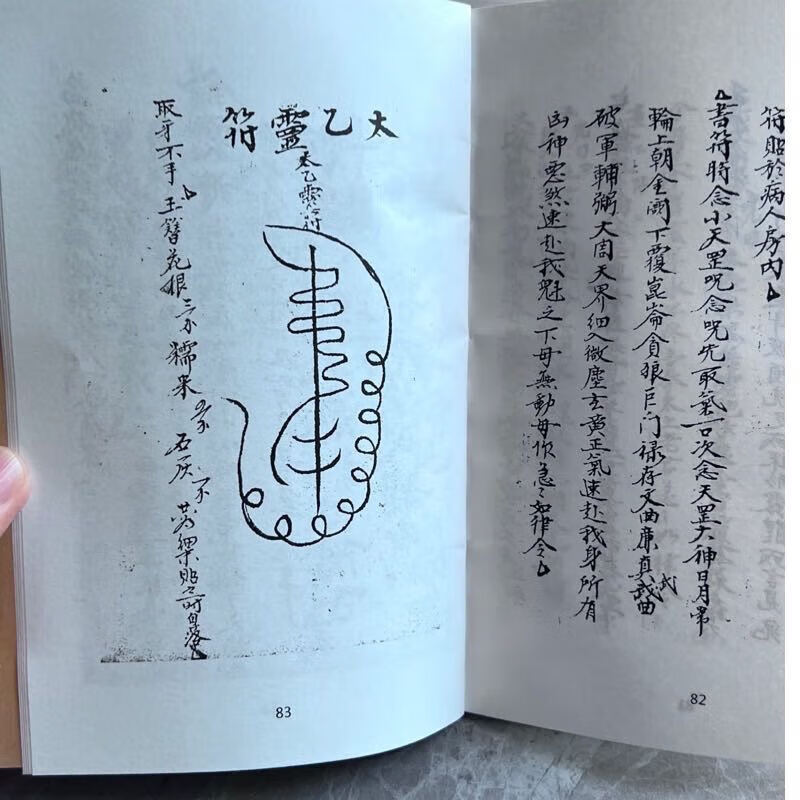 符貼於病人房內
書符時念小天罡咒念咒先取氣一口次念天罡大神日月常
輪上朝金闕下覆崑崙貪狼巨门祿存文曲廉真武曲
武
破軍輔弼大周天界細入微塵玄黃正氣速赴我身所有
凶神惡煞速赴我魁之下毋無動毋作急急如律令
82
太乙靈符
太乙靈符
取牙不手玉簪花根三分糯米 石灰 貼之一時自落
83